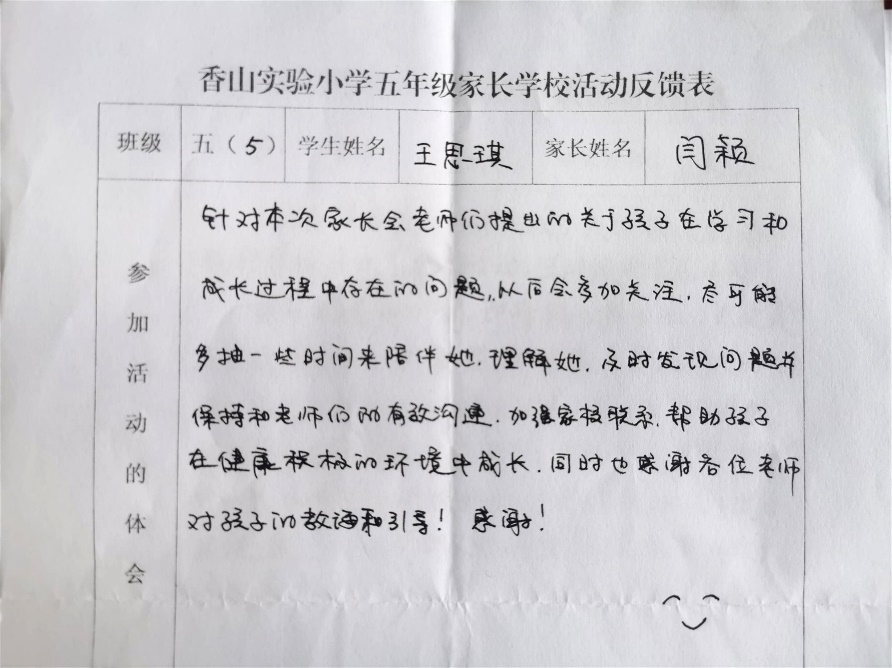 香山实验小学五年级家长学校活动反馈表
班级 五（5） 学生姓名 王思琪 家长姓名 闫颖
参加活动的体会
针对本次家长会老师们提出的关于孩子在学习和
成长过程中存在的问题，以后会多加关注，尽可能
多抽一些时间来陪伴她，理解她，及时发现问题并
保持和老师们的有效沟通，加强家校联系，帮助孩子
在健康积极的环境中成长，同时也感谢各位老师
对孩子的教诲和引导！感谢！